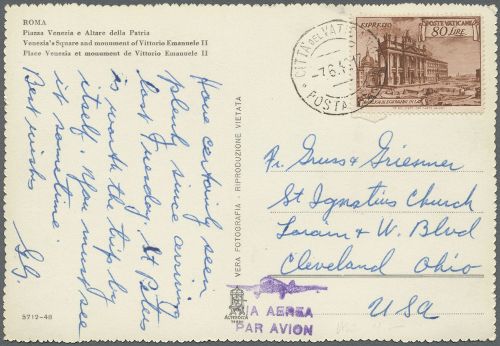 ROMA
Piazza Venezia e Altare della Patria
Venezia's Square and monument of Vittorio Emanuele II
Place Venezia et monument de Vittorio Emanuele II
Have certainly seen
plenty since arriving
last Tuesday. St Peters
is worth the trip by
itself. You must see
it sometime.
Best wishes
5712-48
VERA FOTOGRAFIA - RIPRODUZIONE VIETATA
CITTÀ DEL VATICANO
POSTE
ESPRESSO
POSTE VATICANE
80 LIRE
Fr. Gruss & Griesmer
St Ignatius Church
Lorain & W. Blvd
Cleveland Ohio
USA
VIA AEREA
PAR AVION